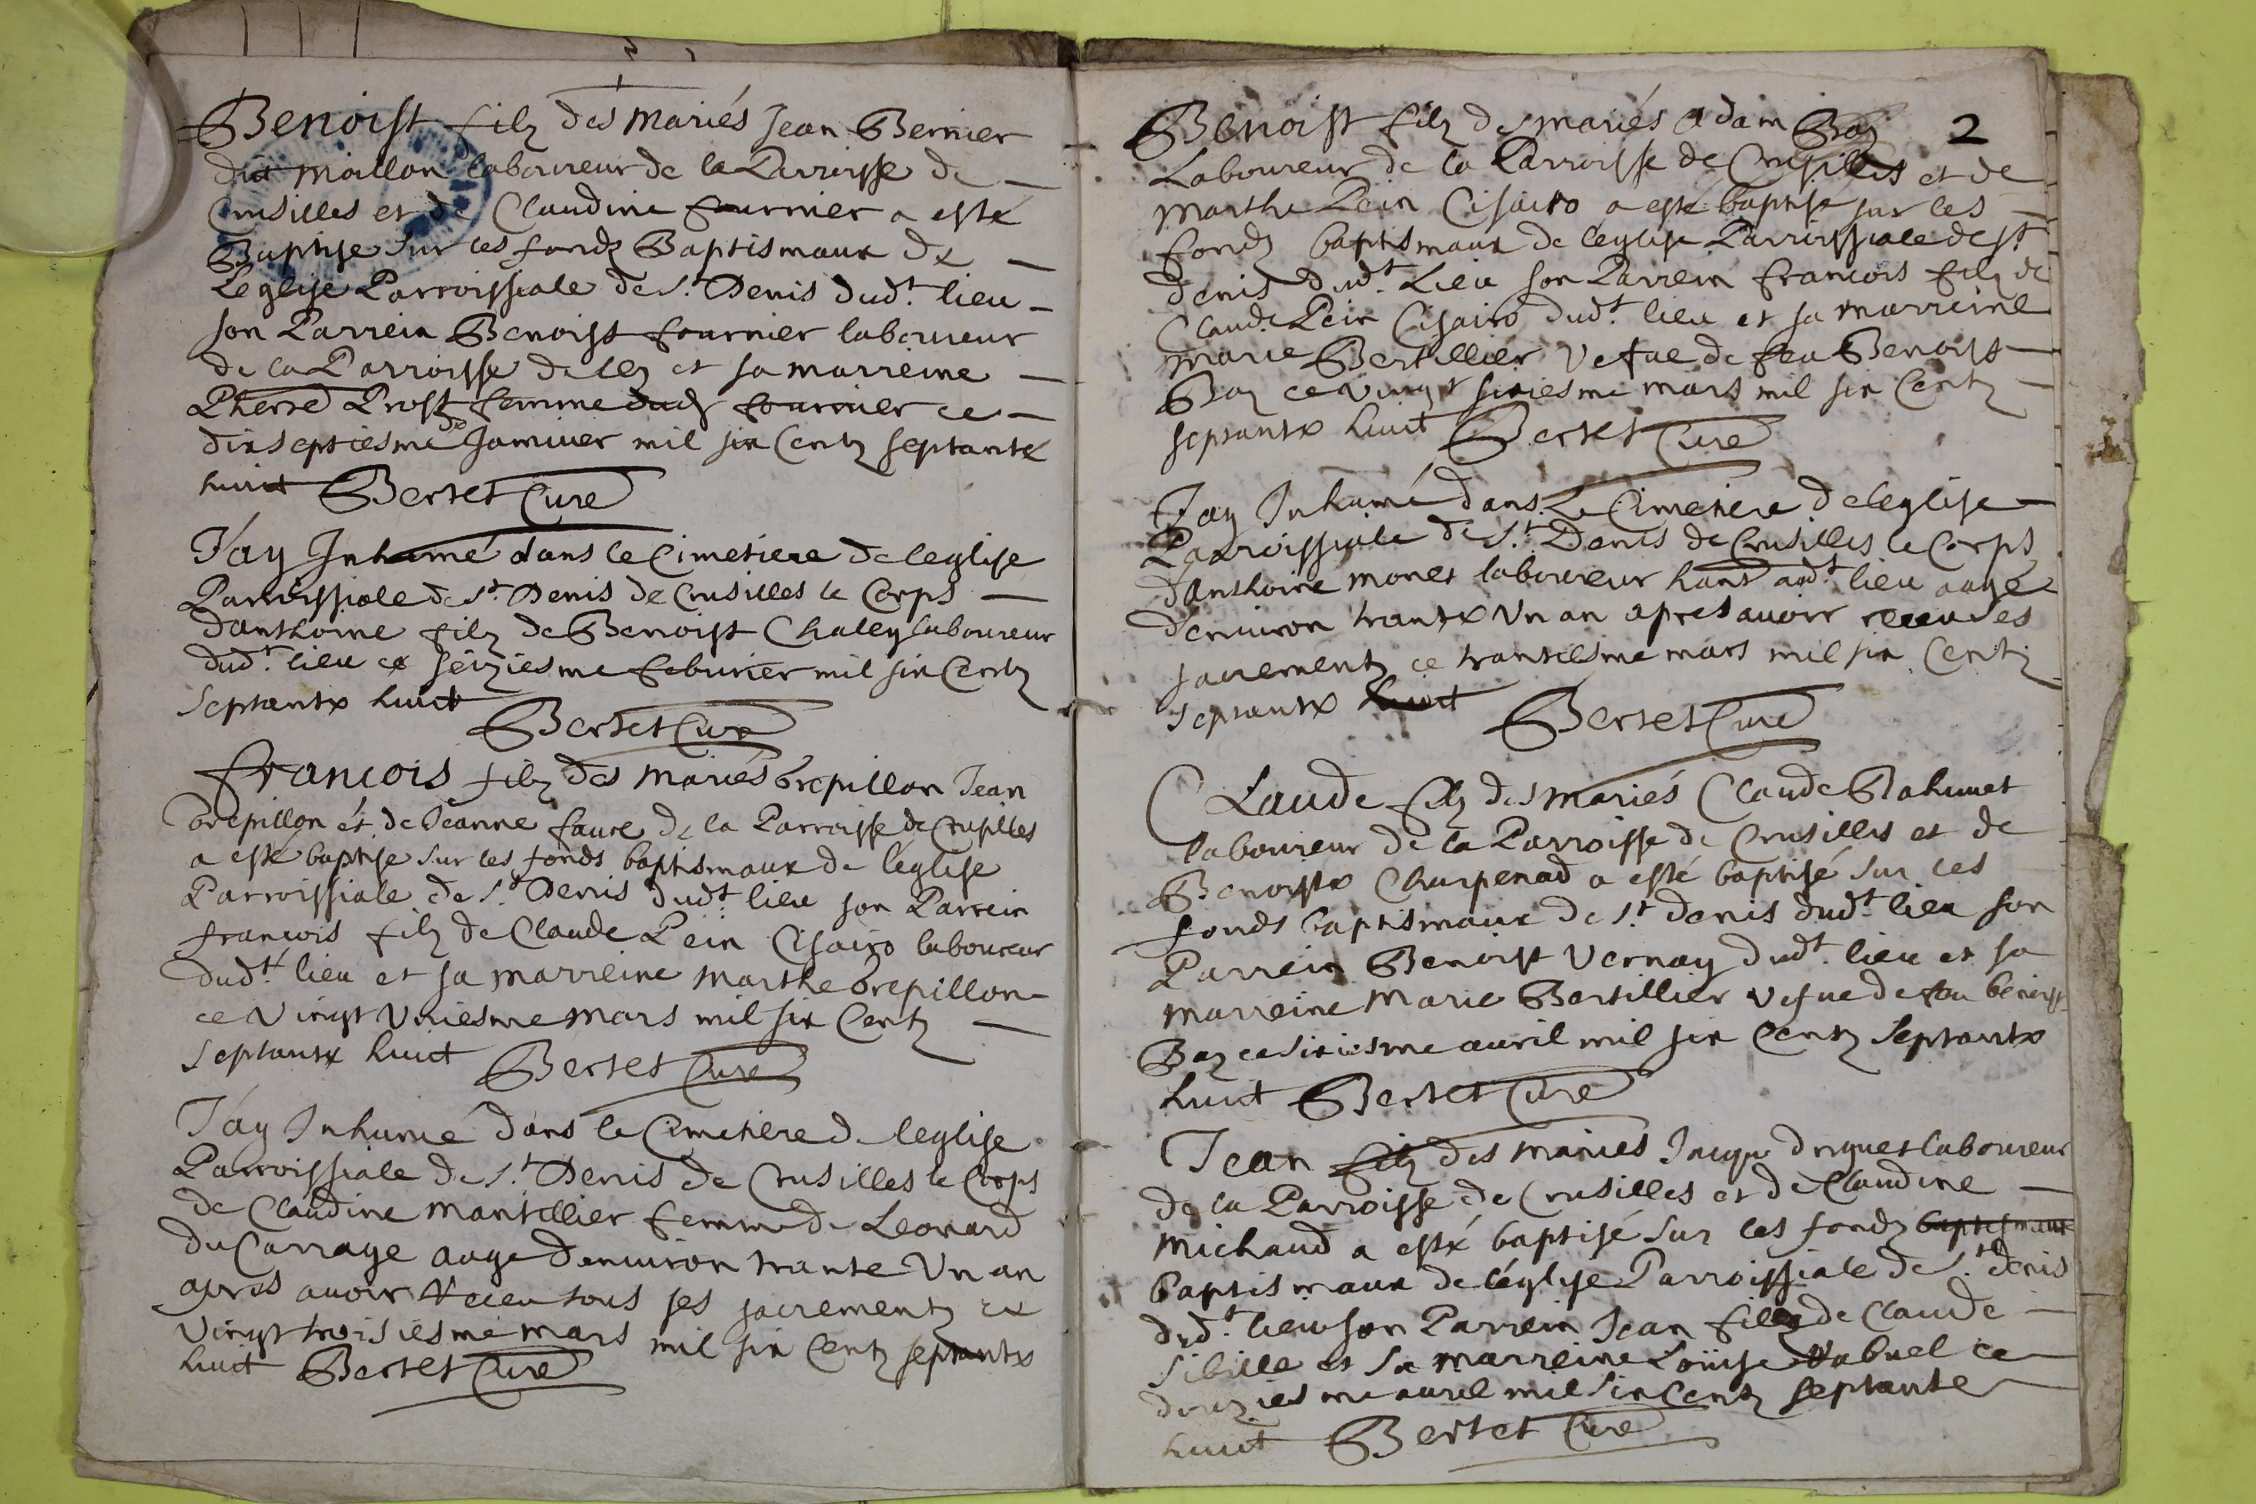 Benoist filz des mariés Jean Bernier
dit moillon laboureur de la Parroisse de
Crusilles et de Claudine fournier a esté
Baptise sur les fondz Baptismaux de
Leglise Parroissiale de St. Denis dudt. lieu
son Parrein Benoist fournier laboureur
de la Parroisse de et sa marreine
Pierre Prost femme dudt fournier ce
dix septiesme de Janvier mil six Centz septante
huit Bertet Curé
J'ay Inhumé dans le Cimetiere de leglise
Parroissiale de St. Denis de Crusilles le Corps
danthoine filz de Benoist Chaley laboureur
dudt. lieu ce seiziesme feburier mil six Centz
septante huict
Bertet Curé
francois filz des mariés brepillon Jean
brepillon et de Jeanne faure de la Parroisse de Crusilles
a esté baptise sur les fonds baptismaux de l'église
Parroissiale de St. Denis dudt. lieu son Parrein
francois filz de Claude Pein Cisairo laboureur
dudt. lieu et sa marreine marthe brepillon
ce Vingt Vniesme mars mil six Centz
septante huict Bertet Curé
J'ay Inhumé dans le Cimetiere de leglise
Parroissiale de St. Denis de Crusilles le Corps
de Claudine mantellier femme de Leonard
du Carrage aage denuiron trante Vn an
apres auoir receu tous ses sacrementz ce
Vingt troisiesme mars mil six Centz septante
huit Bertet Curé
2
Benoist filz des mariés Adam Boz
Laboureur de la Parroisse de Crusilles et de
marthe Pein Cisairo a esté baptise sur les
fondz baptismaux de leglise Parroissiale de St
denis dudt. Lieu son Parrein francois filz de
Claude Pein Cisairo dudt. lieu et sa marreine
marie Bertillier Vefue de feu Benoist
Boz ce Vingt sixiesme mars mil six Centz
septante huit Bertet Curé
Jay Inhumé dans Le Cimetiere de leglise
Parroissiale de St. Denis de Crusilles le Corps
danthoine monet laboureur audt. lieu aagé
denuiron trante Vn an apres auoir receu ses
sacrementz ce trantiesme mars mil six Centz
septante huict
Bertet Curé
Claude filz des mariés Claude Rahuuet
laboureur de la Parroisse de Crusilles et de
Benoiste Charpenad a esté baptisé sur les
fonds baptismaux de St denis dudt. lieu son
Parrein Benoist Vernay dudt. lieu et sa
marreine marie Bertillier Vefue de feu benoist
Boz ce sixiesme auril mil six Centz septante
huit Bertet Curé
Jean filz des mariés Jaque laboureur
de la Parroisse de Crusilles et de Claudine
michaud a esté baptisé sur les fondz baptismaux
baptismaux de léglise Parroissiale de St. denis
dudt. lieu son Parrein Jean filz de Claude
sibille et sa marreine Loüise ce
douziesme auril mil six Centz septante
huit Bertet Curé